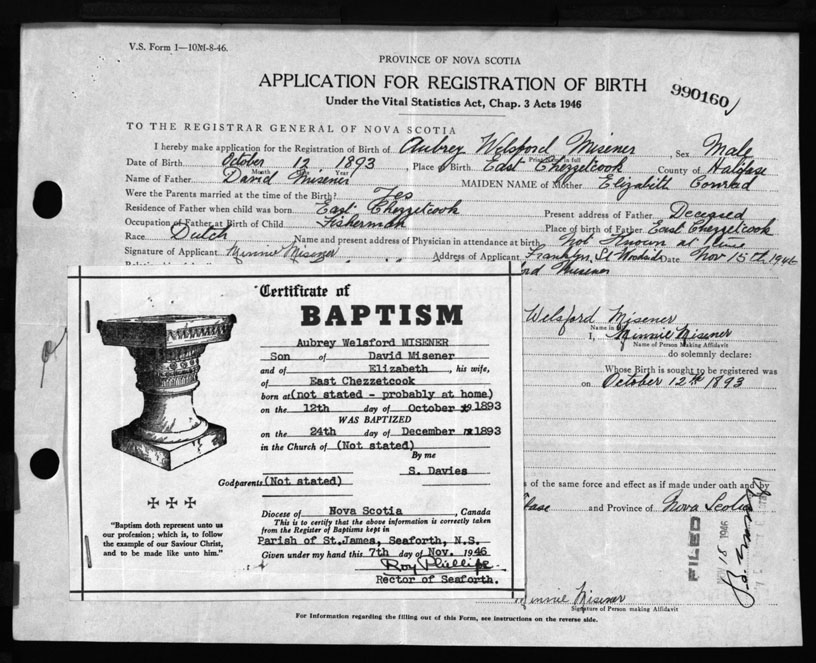 V.S. Form 1—10M-8-46.
PROVINCE OF NOVA SCOTIA
APPLICATION FOR REGISTRATION OF BIRTH
Under the Vital Statistics Act, Chap. 3 Acts 1946
990160
TO THE REGISTRAR GENERAL OF NOVA SCOTIA
I hereby make application for the Registration of Birth of Aubrey Welsford Misener Sex Male
Print name in full
Date of Birth October 12 1893, Place of Birth East Chezzetcook County of Halifax
Month Year
Name of Father David Misener MAIDEN NAME of Mother Elizabeth Conrad
Were the Parents married at the time of the Birth? Yes
Residence of Father when child was born East Chezzetcook Present address of Father Deceased
Occupation of Father at Birth of Child Fisherman Place of birth of Father East Chezzetcook
Race Dutch Name and present address of Physician in attendance at birth Not Known at time
Signature of Applicant Minnie Misener Address of Applicant Franklyn St Woodside Date Nov 15th 1946
Misener
Welsford Misener
Name in
I, Minnie Misener
Name of Person Making Affidavit
do solemnly declare:
Whose Birth is sought to be registered was
on October 12th 1893
of the same force and effect as if made under oath and by
and Province of Nova Scotia
FILED
18 1946
Minnie Misener
Signature of Person making Affidavit
For Information regarding the filling out of this Form, see instructions on the reverse side.
Certificate of
BAPTISM
Aubrey Welsford MISENER
Son of David Misener
and of Elizabeth, his wife,
of East Chezzetcook
born at (not stated - probably at home)
on the 12th day of October 1893
WAS BAPTIZED
on the 24th day of December 1893
in the Church of (Not stated)
By me
S. Davies
Godparents (Not stated)
Diocese of Nova Scotia, Canada
This is to certify that the above information is correctly taken
from the Register of Baptisms kept in
Parish of St.James, Seaforth, N.S.
Given under my hand this 7th day of Nov. 1946
Roy Phillips
Rector of Seaforth.
"Baptism doth represent unto us
our profession; which is, to follow
the example of our Saviour Christ,
and to be made like unto him."